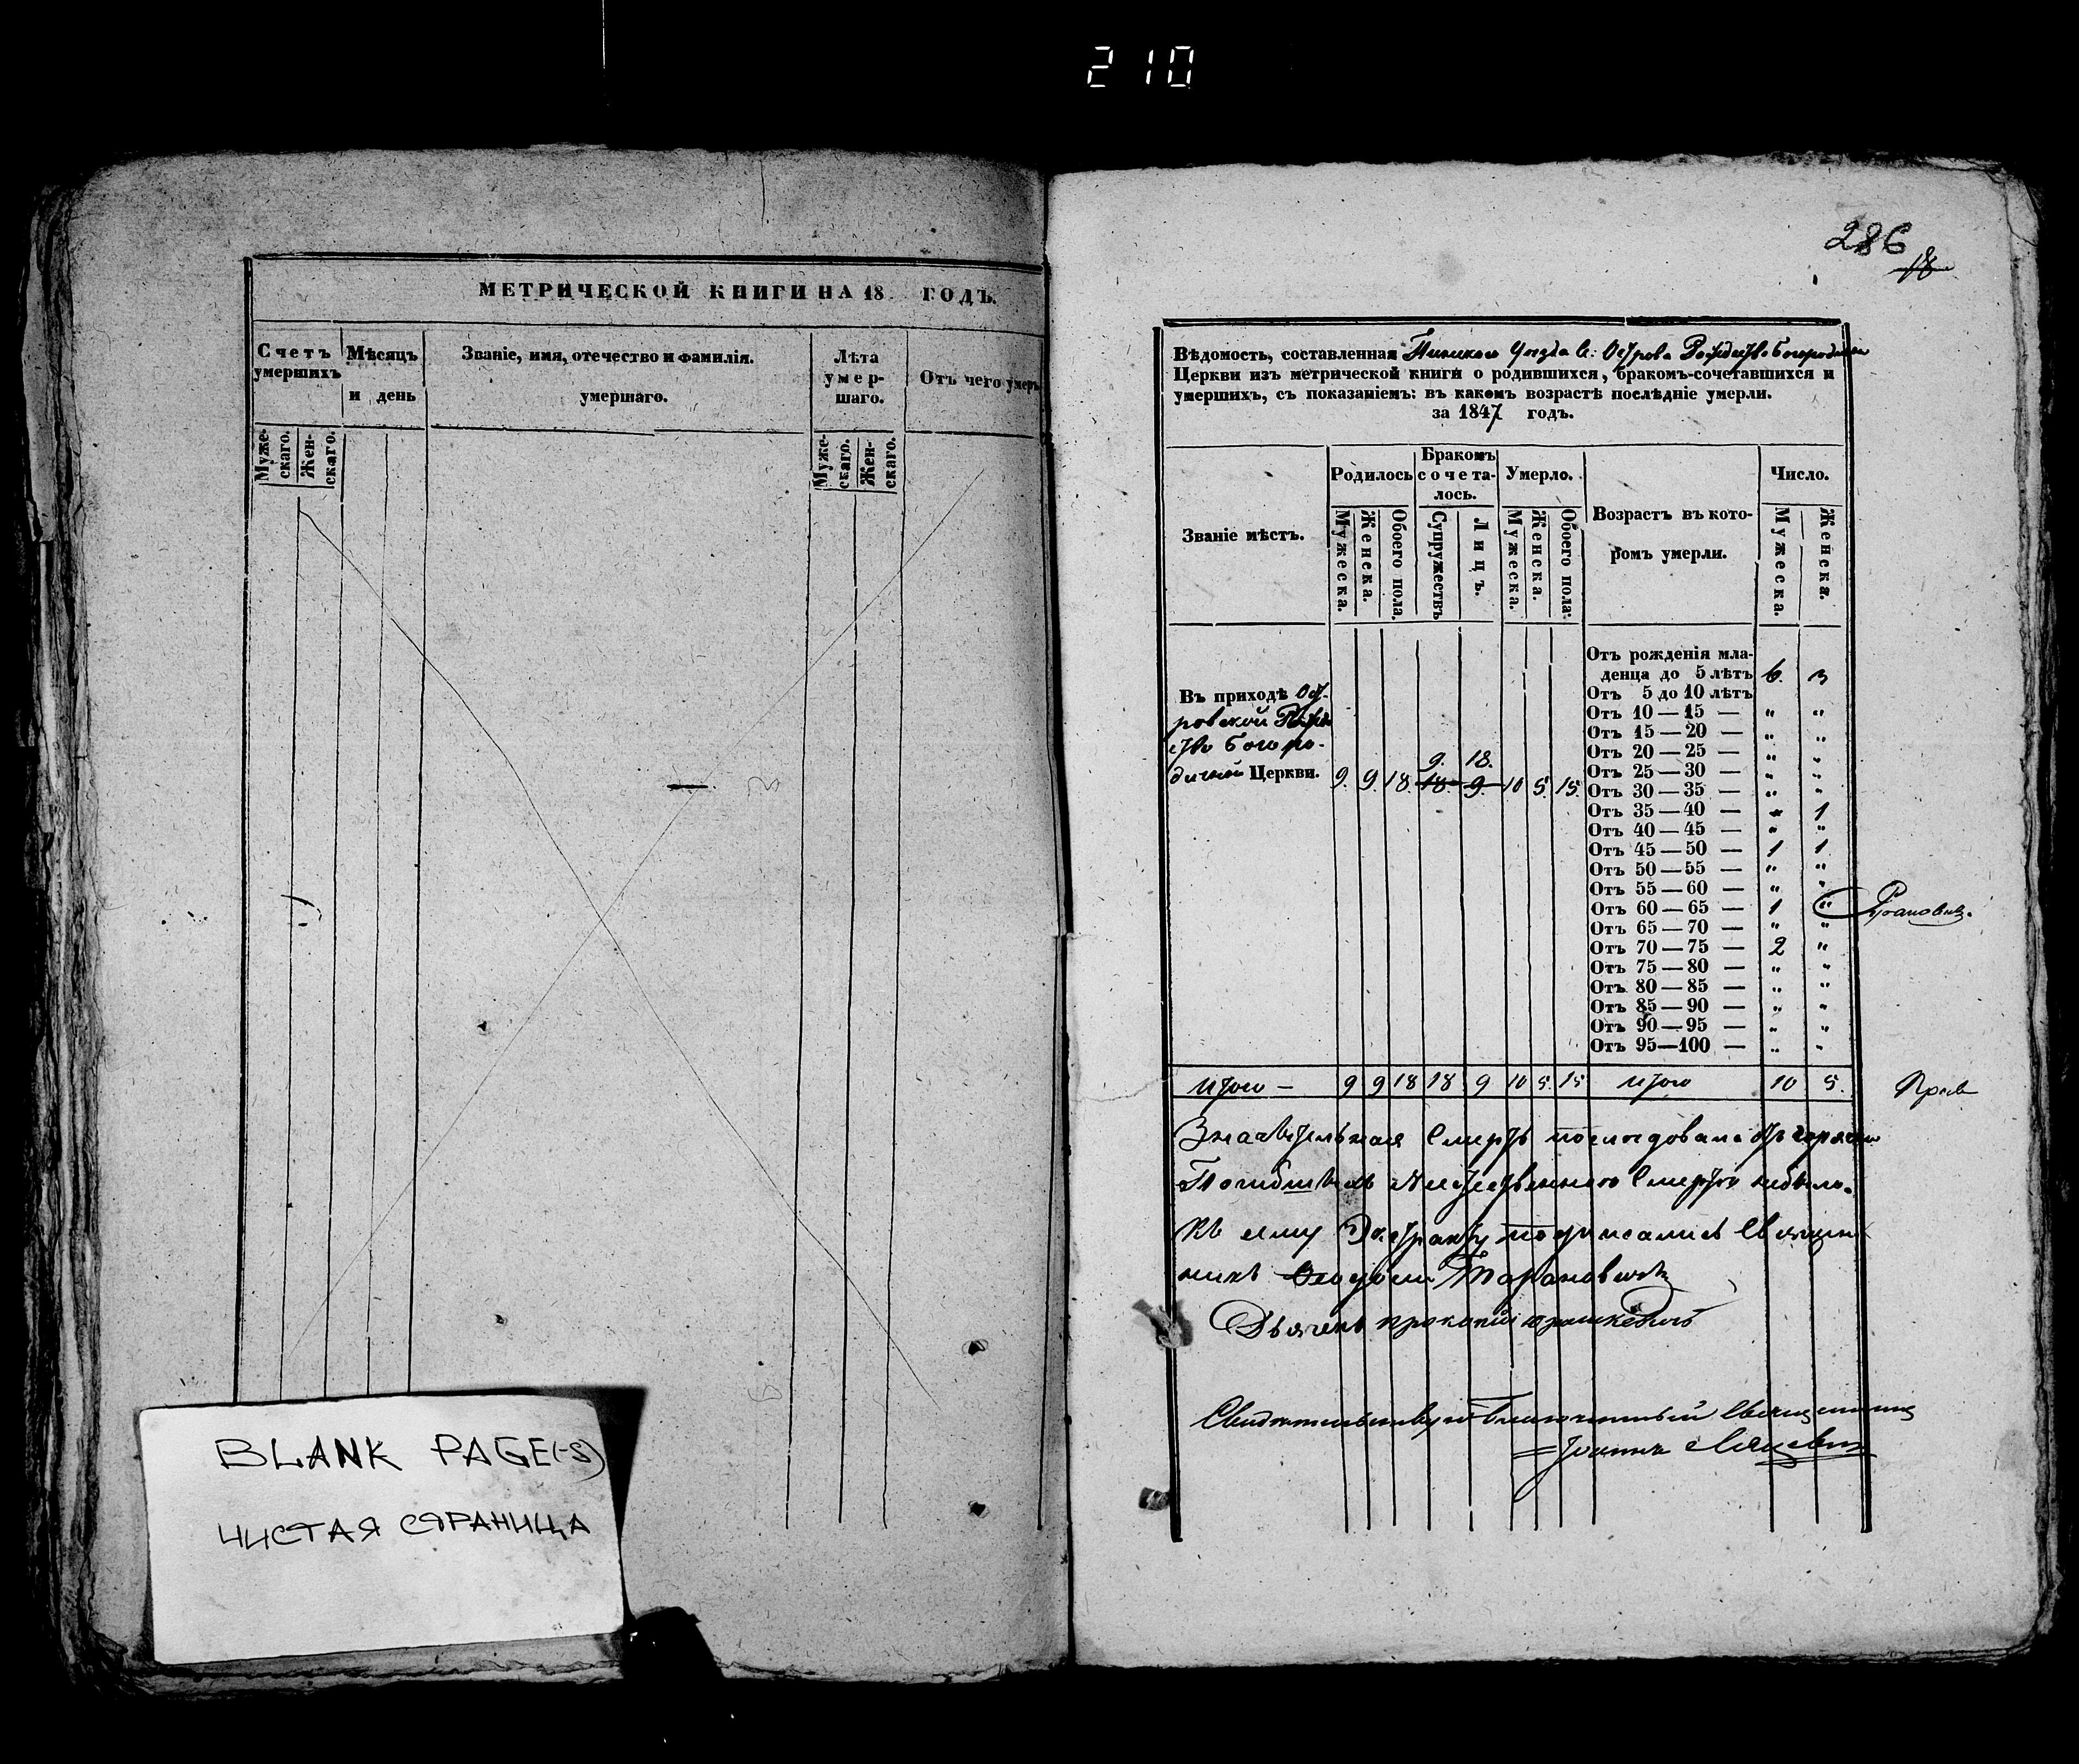 210
МЕТРИЧЕСКОЙ КНИГИ НА 18 ГОДЪ.
Счетъ умершихъ
Мѣсяцъ и день
Званіе, имя, отечество и фамилія. умершаго.
Лѣта умер-шаго.
Отъ чего умеръ
Муже-скаго.
Жен-скаго.
Муже-скаго.
Жен-скаго.
BLANK PAGE(-S)
ЧИСТАЯ СТРАНИЦА
286
18
Вѣдомость, составленная Пинскаго Уѣзда С: Острова Рождество Богородичн
Церкви изъ метрической книги о родившихся, бракомъ-сочетавшихся и
умершихъ, съ показаніемъ: въ какомъ возрастѣ послѣдніе умерли.
за 1847 годъ.
Званіе мѣстъ.
Родилось
Бракомъ сочета-лось.
Умерло.
Возрастъ въ кото-ромъ умерли.
Число.
Мужеска.
Женска.
Обоего пола.
Супружествъ
Лицъ.
Мужеска.
Женска.
Обоего пола.
Мужеска.
Женска.
Въ приходѣ Ост-
ровской Рожде
ство Богоро-
дичной Церкви.
9. 18.
9. 9. 18. 18. 9. 10 5. 15.
Отъ рожденія мла-
денца до 5 лѣтъ 6. 3
Отъ 5 до 10 лѣтъ
Отъ 10 — 15 — " "
Отъ 15 — 20 — " "
Отъ 20 — 25 — " "
Отъ 25 — 30 — " "
Отъ 30 — 35 — " "
Отъ 35 — 40 — " 1
Отъ 40 — 45 — " "
Отъ 45 — 50 — 1 1
Отъ 50 — 55 — " "
Отъ 55 — 60 — " "
Отъ 60 — 65 — 1 "
Отъ 65 — 70 — " "
Отъ 70 — 75 — 2 "
Отъ 75 — 80 — " "
Отъ 80 — 85 — " "
Отъ 85 — 90 — " "
Отъ 90 — 95 — " "
Отъ 95 — 100 — " "
Итого — 9 9 18 18 9 10 5. 15 Итого 10 5.
Значительная Смерть последовала отъ
Погибшихъ Неестественною Смертію небыло.
Къ сему Экстракту подписались Священ
никъ Тарановичъ
Дьячекъ Прокопій
Свидетельствую Благочинный Священникъ
Іоаннъ